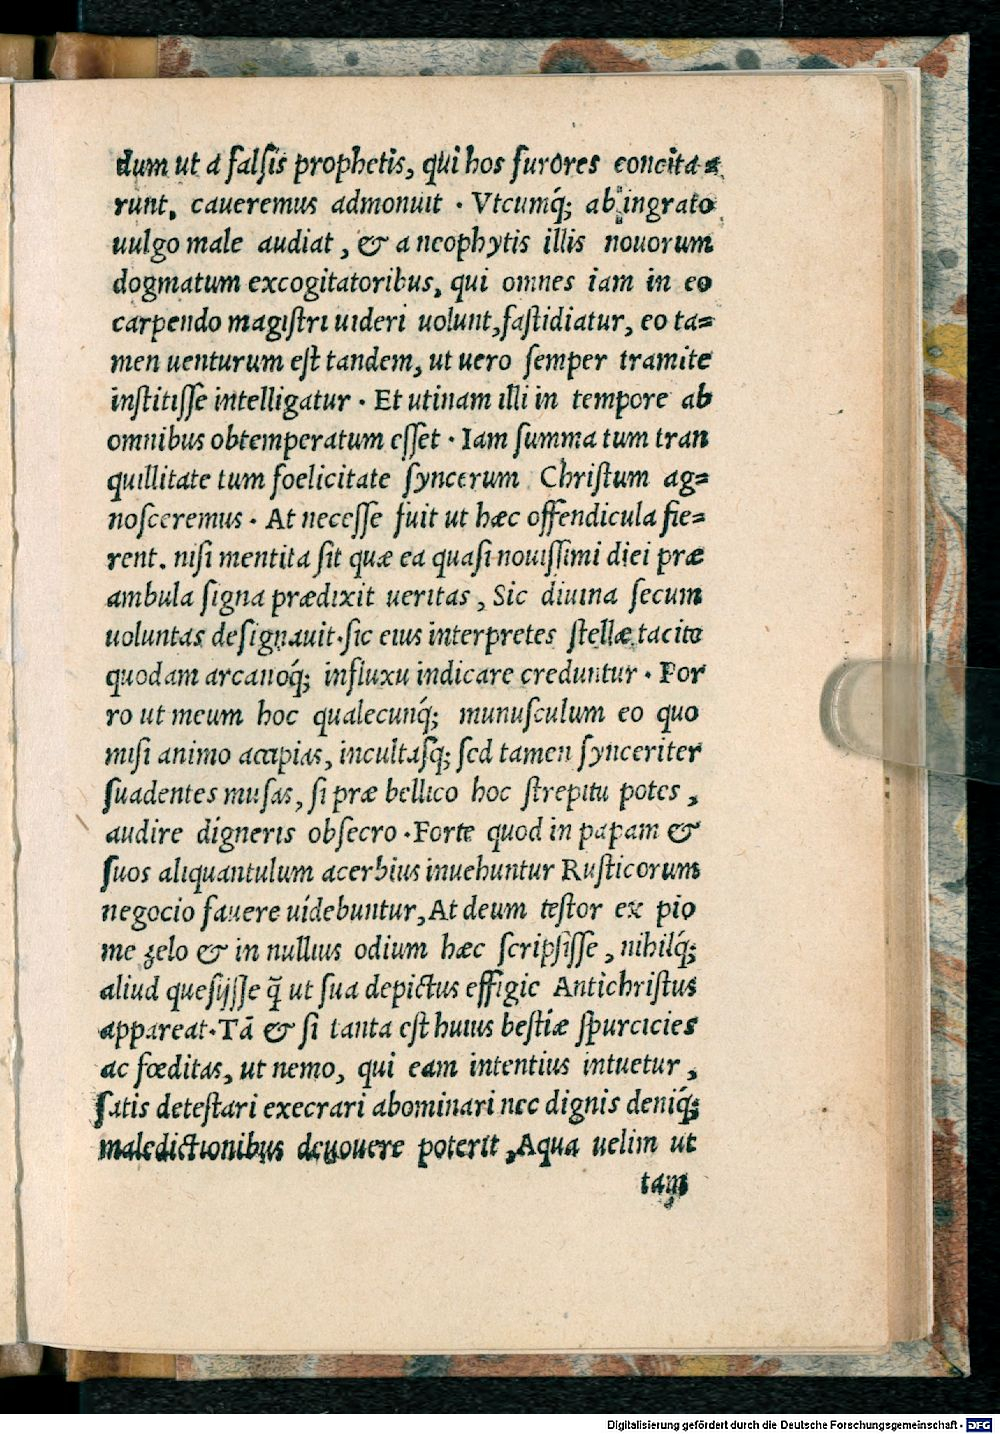 dum ut a falsis prophetis, qui hos furores concita=
runt, caueremus admonuit . Vtcumq́; ab ingrato
uulgo male audiat , & a neophytis illis nouorum
dogmatum excogitatoribus, qui omnes iam in eo
carpendo magistri uideri uolunt,fastidiatur, eo ta=
men uenturum est tandem, ut uero semper tramite
institisse intelligatur . Et utinam illi in tempore ab
omnibus obtemperatum esset . Iam summa tum tran
quillitate tum foelicitate syncerum Christum ag=
nosceremus . At necesse fuit ut hæc offendicula fie=
rent. nisi mentita sit quæ ea quasi nouissimi diei præ
ambula signa prædixit ueritas , Sic diuina secum
uoluntas designauit.sic eius interpretes stellæ tacito
quodam arcanoq́; influxu indicare creduntur . Por
ro ut meum hoc qualecunq́; munusculum eo quo
misi animo accipias, incultasq́; sed tamen synceriter
suadentes musas, si præ bellico hoc strepitu potes ,
audire digneris obsecro .Forte quod in papam &
suos aliquantulum acerbius inuehuntur Rusticorum
negocio fauere uidebuntur, At deum testor ex pio
me zelo & in nullius odium hæc scripsisse , nihilq́;
aliud quesijsse q̃ ut sua depictus effigie Antichristus
appareat.Tā & si tanta est huius bestiæ spurcicies
ac fœditas, ut nemo, qui eam intentius intuetur ,
satis detestari execrari abominari nec dignis deniq́;
maledictionibus deuouere poterit ,Aqua uelim ut
tam
Digitalisierung gefördert durch die Deutsche Forschungsgemeinschaft - DFG